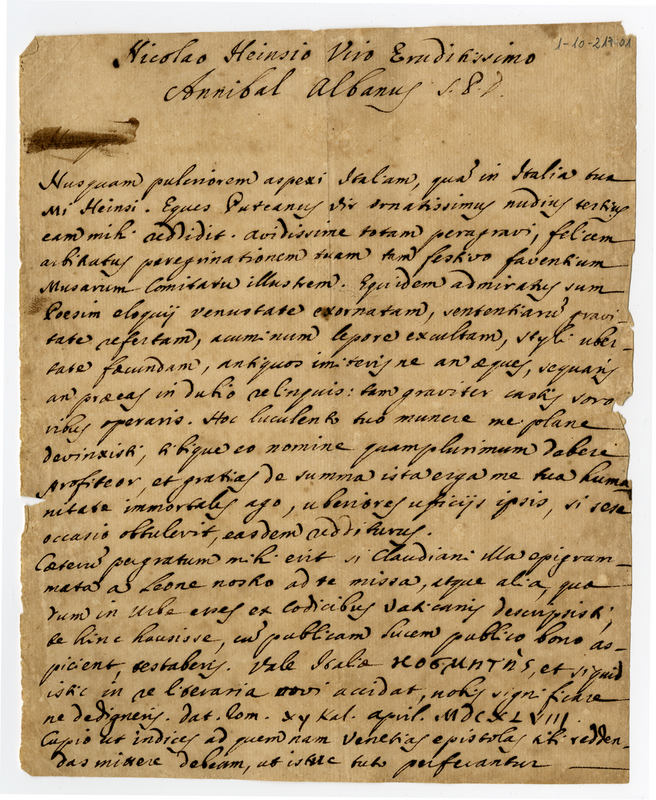 1-10-217:01
Nicolao Heinsio Viro Eruditissimo
Annibal Albanus S. P. D.
Nusquam pulcriorem aspexi Italiam, quā in Italia tua
mi Heinsi. Eques Puteanus vir ornatissimus nudius tertius
eam mihi reddidit. avidissime totam peragravi, felicem
arbitratus peregrinationem tuam tam festivo faventium
Musarum Comitatu illustrem. Equidem admiratus sum
Poesim eloquij venustate exornatam, sententiarū gravi-
tate refertam, acuminum lepore excultam, styli uber-
tate fœcundam, antiquos imiteris ne an æques, sequaris
an præeas in dubio relinquis: tam graviter castis soro
ribus operaris. Hoc luculento tuo munere me plane
devinxisti, tibique eo nomine quamplurimum debere
profiteor, et gratias de summa ista erga me tua huma
nitate immortales ago, uberiores officijs ipsis, si sese
occasio obtulerit, easdem redditurus.
Cæterū pergratum mihi erit si Claudiani illa epigram-
mata a Leone nostro ad te missa, atque alia, quæ
dum in Urbe esses ex Codicibus Vaticanis descripsisti,
te hinc hausisse, cū publicam lucem publico bono as-
picient, testaberis. Vale Italiæ et siquid
istic in re literaria novi accidat, nobis significare
ne dedigneris. dat. Rom. XV Kal. april. MDCXLVIII.
Cupio ut indices ad quem nam Venetias epistolas tibi redden-
das mittere debeam, ut istuc tuto perferantur